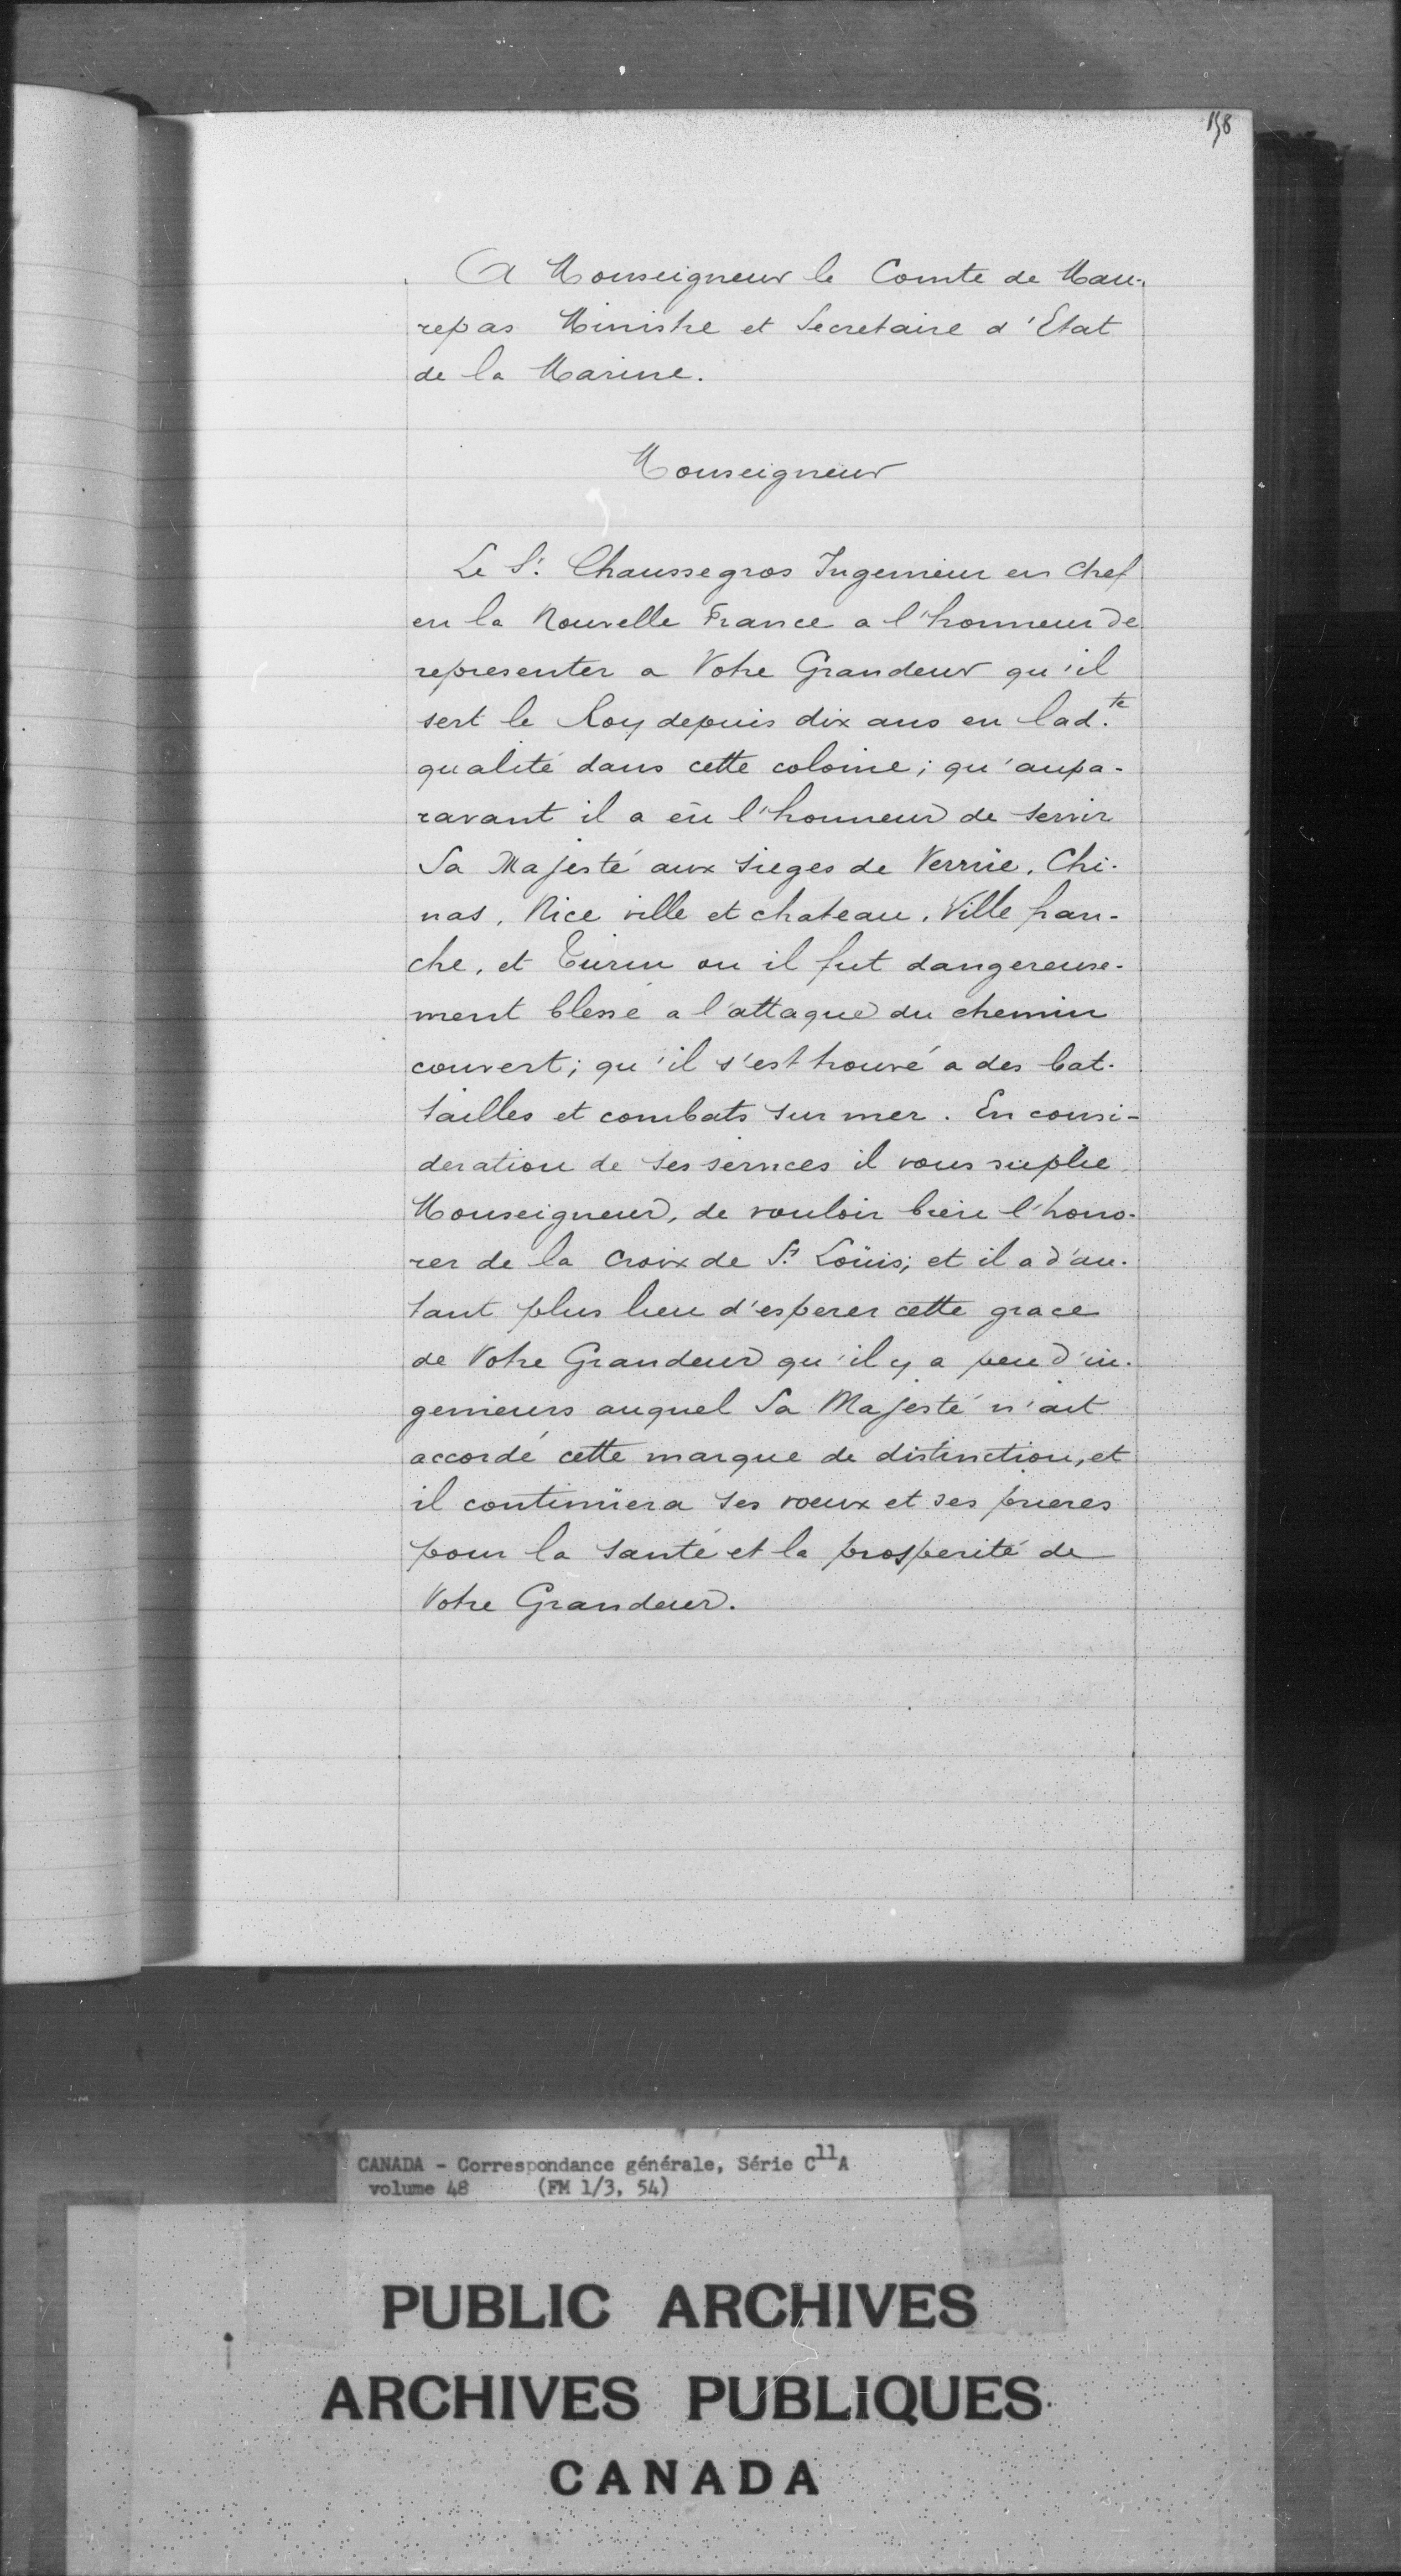 158
A Monseigneur le Comte de Mau-
repas Ministre et Secretaire d'Etat
de la Marine.
Monseigneur
Le Sr. Chaussegros Ingenieur en chef
en la Nouvelle France a l'honneur de
representer a Votre Grandeur qu'il
sert le Roy depuis dix ans en lad.te
qualité dans cette colonie; qu'aupa-
ravant il a eü l'honneur de servir
Sa Majesté aux sieges de Verrüe, Chi-
nas, Nice ville et chateau, Ville fran-
che, et Turin ou il fut dangereuse-
ment blessé a l'attaque du chemin
couvert; qu'il s'est trouvé a des bat-
tailles et combats sur mer. En consi-
deration de ses services il vous suplie
Monseigneur, de vouloir bien l'hono-
rer de la Croix de St. Loüis; et il a d'au-
tant plus lieu d'esperer cette grace
de Votre Grandeur qu'il y a peu d'in-
genieurs auquel Sa Majesté n'ait
accordé cette marque de distinction, et
il continüera ses voeux et ses prieres
pour la santé et la prosperité de
Votre Grandeur.
CANADA - Correspondance générale, Série C11A
volume 48 (FM 1/3, 54)
PUBLIC ARCHIVES
ARCHIVES PUBLIQUES
CANADA